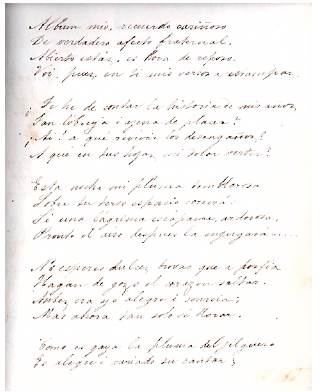 Album mio, recuerdo cariñoso
De verdadero afecto fraternal,
Abierto estás, es hora de reposo.
Voi, pues, en ti mis versos a estampar.

¿Te he de contar la historia de mis amores
Tan lóbrega i ajena de placer?
¡Ai! a qué revivir los desengaños?
A qué en tus hojas mi dolor verter?

Esta noche mi pluma temblorosa
Sobre tu terso espacio correrá
Si una lágrima escápame, ardorosa,
Pronto el aire después la enjugará.....

No esperes dulces trovas que a porfia
Hagan de gozo el corazon saltar.
Antes era yo alegre i sonreia;
Mas ahora tan solo sé llorar.

Como es gaya la pluma del jilguero
Es alegre i variado su cantar;